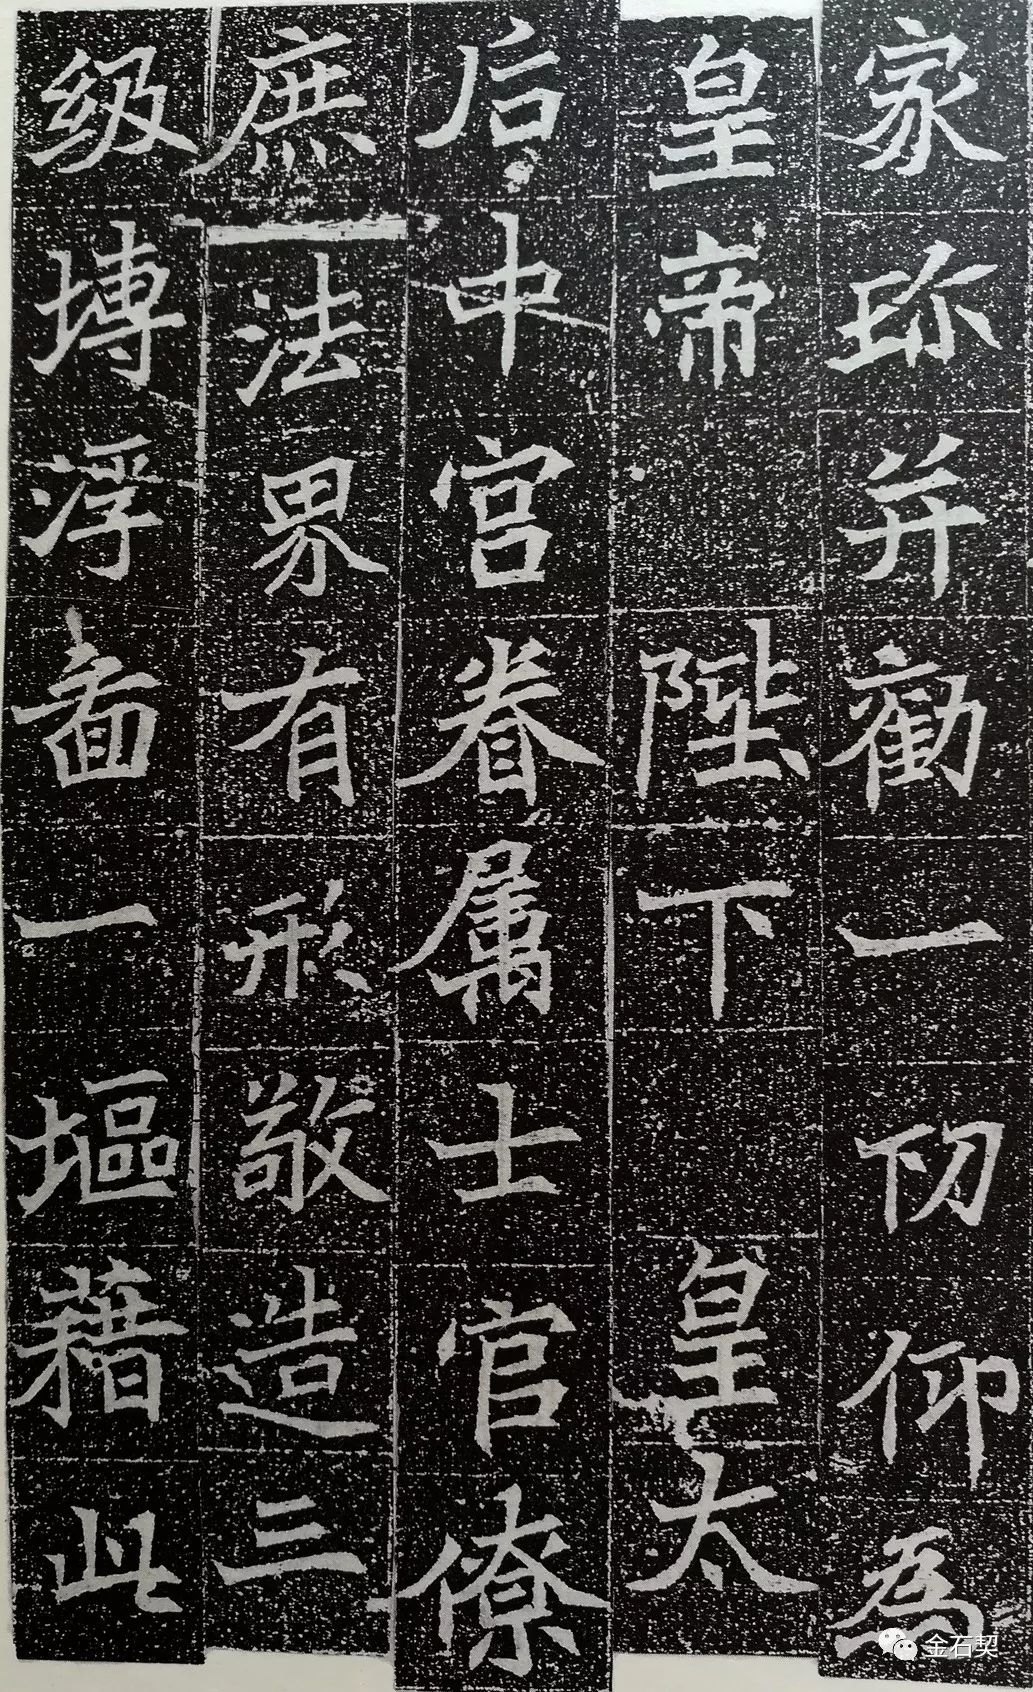 家珎并勸一切仰為
皇帝陛下皇太
后中宮眷属士官僚
庶法界有形敬造三
級塼浮啚一塸藉此
金石契